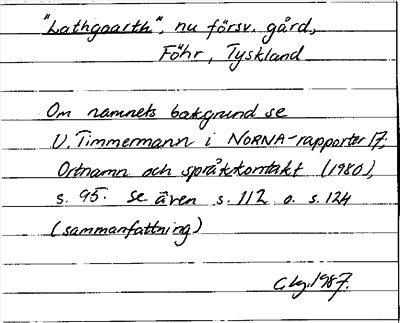 "Lathgaarth", nu försv. gård,
Föhr, Tyskland
Om namnets bakgrund se
U. Timmermann i NORNA-rapporter 17;
Ortnamn och språkkontakt (1980),
s. 95. Se även s. 112 o. s. 124
(sammanfattning)
1987.